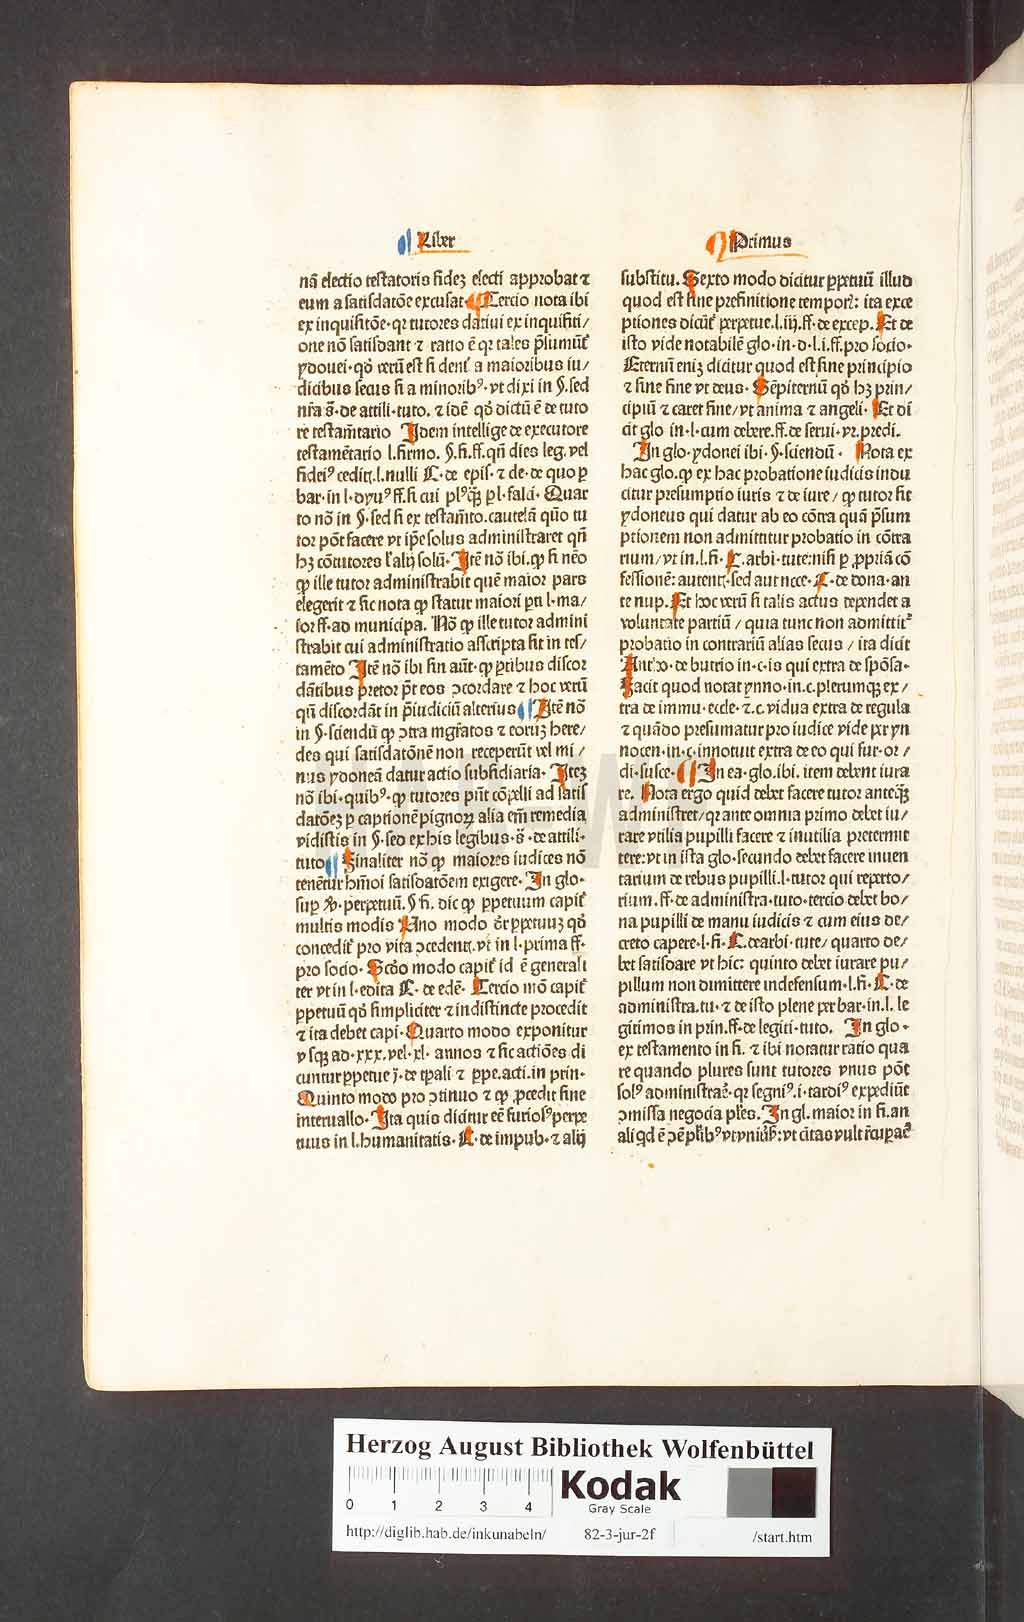 Liber
Primus
nā electio testatoris fidez electi approbat ⁊
eum a satisdatōe excusat· Tercio nota ibi
ex inquisitōe· qꝛ tutores datiui ex inquisiti/
one nō satisdant ⁊ ratio ē qꝛ tales p̄sumūt̄
ydonei· qd̄ verū est si dent̄ a maioribus iu/
dicibus secus si a minorib⁹· vt dixi in §. sed
nr̄a s̄· de attili· tuto. ⁊ idē qd̄ dictū ē de tuto
re testam̄tario Idem intellige de executore
testamētario l. firmo. §. fi. ff. qn̄ dies leg. vel
fidei⁹ cedit. l. nulli C· de epis· ⁊ de· de quo ꝑ
bar· in l· dyu⁹ ff. si cui pl⁹qꝫ ꝑ l· falci· Quar
to nō in §· sed si ex testam̄to. cautelā quō tu
tor pōt facere vt ip̄e solus administraret qn̄
hꝫ cōtutores l' alij solū· Itē nō ibi. ꝙ si nēo
ꝙ ille tutor administrabit quē maior pars
elegerit ⁊ sic nota ꝙ statur maiori ꝑti l· ma/
ior ff· ad municipa. Nō ꝙ ille tutor admini
strabit cui administratio ascripta fit in tes/
tamēto Itē nō ibi sin aūt· ꝙ ꝑtibus discor
dātibus pretor pōt eos ɔcordare ⁊ hoc verū
qn̄ discordāt in p̄iudiciū alterius Itē nō
in §· sciendū ꝙ ɔtra mgr̄atos ⁊ eorūꝫ here/
des qui satisdatōnē non receperūt vel mi/
nus ydoneā datur actio subsidiaria· Iteꝫ
nō ibi· quib⁹· ꝙ tutores pn̄t cōpelli ad satis
datōeꝫ ꝑ captionē pignoꝝ alia em̄ remedia
vidistis in §· seo ex his legibus· s̄· de attili·
tuto Finaliter nō ꝙ maiores iudices nō
tenētur hm̄oi satisdatōem exigere· In glo·
suꝑ v̄· perpetuū. § fi. dic ꝙ ꝑpetuum capit̄
multis modis Uno modo dr̄ ꝑpetuuꝫ qd̄
concedit̄ pro vita ɔcedent. vt in l· prima ff·
pro socio· Scd̄o modo capit̄ id ē generali
ter vt in l· edita C· de edē· Tercio mō capit̄
ꝑpetuū qd̄ simpliciter ⁊ indistincte procedit
⁊ ita debet capi· Quarto modo exponitur
vsqꝫ ad· xxx. vel· xl· annos ⁊ sic actiōes di
cuntur ꝑpetue j· de tꝑali ⁊ ꝑpe. acti. in prin·
Quinto modo pro ɔtinuo ⁊ ꝙ ꝓcedit sine
interuallo· Ita quis dicitur eē furios⁹ perpe
tuus in l. humanitatis· C· de impub· ⁊ alij
substitu. Sexto modo dicitur ꝑpetuū illud
quod est sine prefinitione tempor̄: ita exce
ptiones dicūt̄ perpetue. l. iij. ff· de excep. Et de
isto vide notabilē glo· in· d· l. i. ff. pro socio·
Eternū eniꝫ dicitur quod est sine principio
⁊ sine fine vt deus· Sēpiternū qd̄ hꝫ prin/
cipiū ⁊ caret fine/ vt anima ⁊ angeli· Et di
cit glo in· l· cum debere. ff. de serui· vr. predi.
In glo· ydonei ibi· §· sciendū· Nota ex
hac glo. ꝙ ex hac probatione iudicis indu
citur presumptio iuris ⁊ de iure/ ꝙ tutor sit
ydoneus qui datur ab eo cōtra quā p̄sum
ptionem non admittitur probatio in cōtra
rium/ vt in. l. fi· C. arbi· tute: nisi ꝑ ꝓpriā cō
fessionē: autent. sed aut necce· C· de dona· an
te nup. Et hoc verū si talis actus dependet a
voluntate partiū/ quia tunc non admittit᷑
probatio in contrariū alias secus/ ita dicit
Antho· de butrio in· c· is qui extra de spōsa·
Facit quod notat ynno· in. c. plerumqꝫ ex/
tra de immu· eccle· ⁊. c. vidua extra de regula
⁊ quādo presumatur pro iudice vide per yn
nocen· in· c. innotuit extra de eo qui fur· or/
di· susce· In ea· glo. ibi. item debent iura
re. Nota ergo quid debet facere tutor anteqꝫ
administret/ qꝛ ante omnia primo debet iu/
rare vtilia pupilli facere ⁊ inutilia pretermit
tere: vt in ista glo· secundo debet facere inuen
tarium de rebus pupilli. l· tutor qui reperto/
rium. ff· de administra· tuto· tercio debet bo/
na pupilli de manu iudicis ⁊ cum eius de/
creto capere· l· fi· C. de arbi· tute/ quarto de/
bet satisdare vt hic: quinto debet iurare pu/
pillum non dimittere indefensum· l. fi· C· de
administra. tu· ⁊ de isto plene per bar· in. l. le
gitimos in prin. ff· de legiti· tuto. In glo·
ex testamento in fi. ⁊ ibi notatur ratio qua
re quando plures sunt tutores vnus pōt
sol⁹ administrar̄· qꝛ segni⁹. i· tardi⁹ expediūt
ɔmissa negocia ples. In gl. maior in fi. an